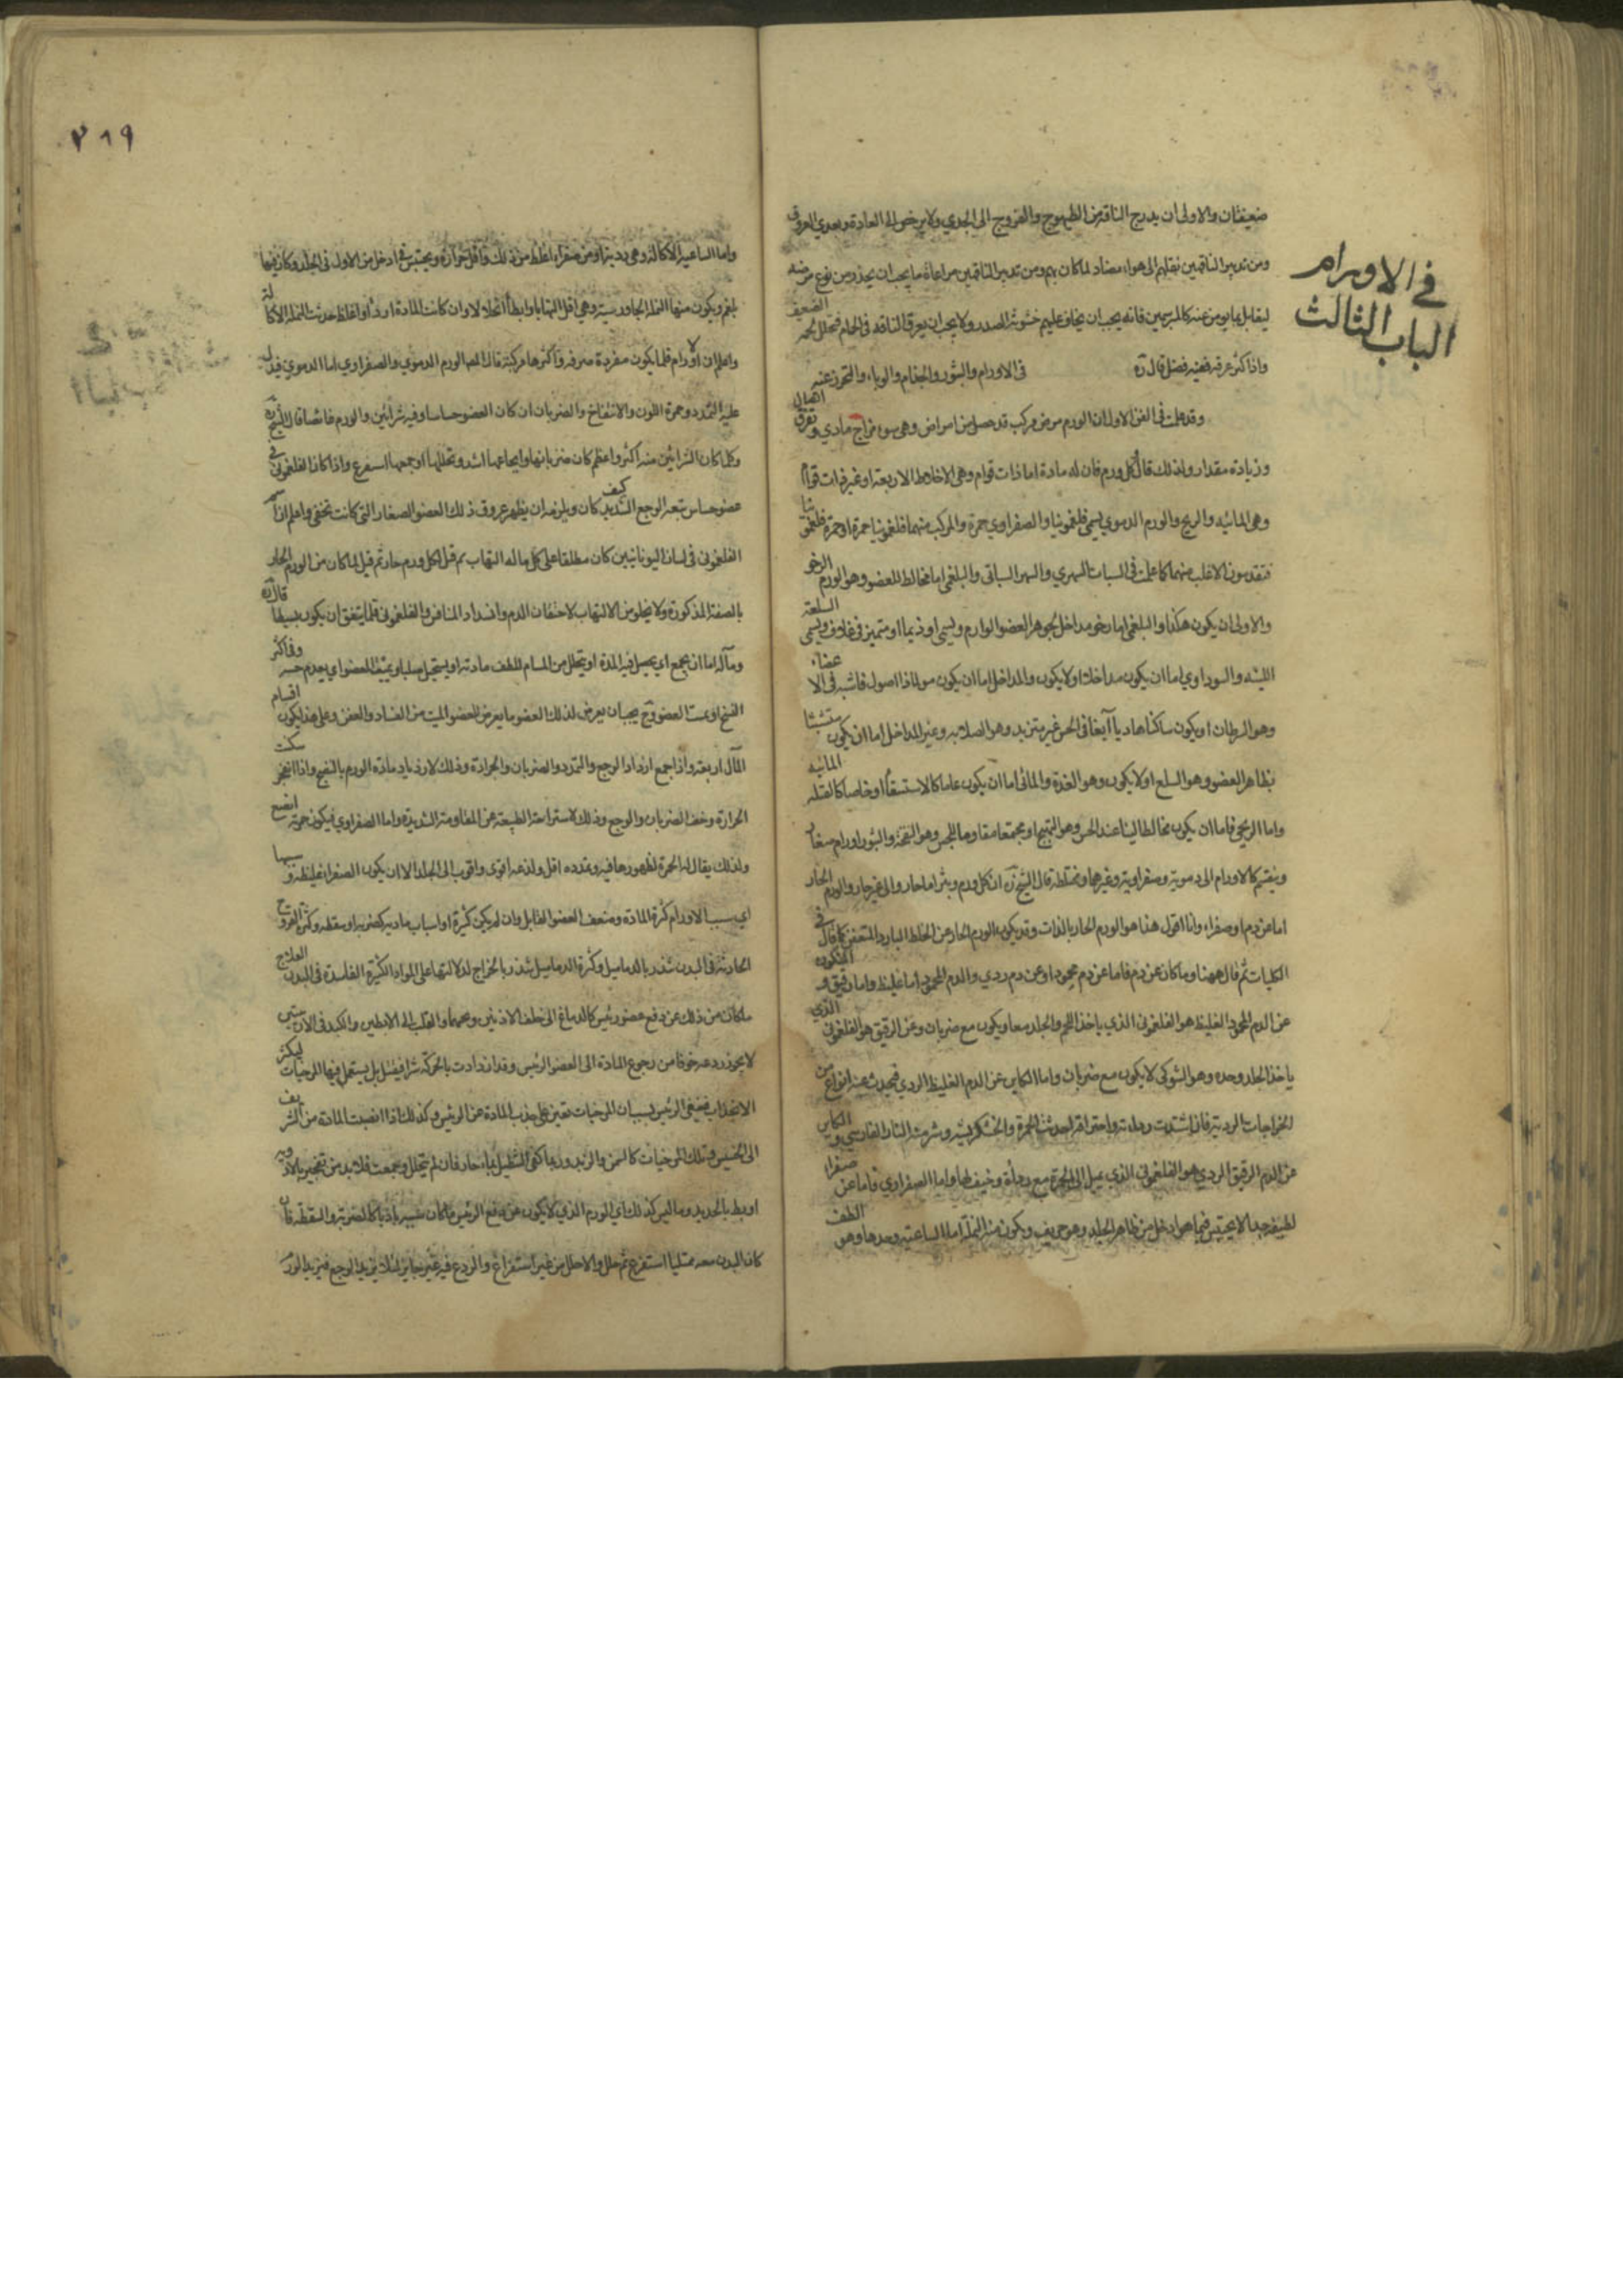 في الاورام
الباب الثالث
ضعيفتان والاولى ان يدرج الناقه من الطيهوج والفروج الى الجدي ولا يرخص الى العادة وبعدي العروق
ومن تدبير الناقهين نقلهم الى هواء مضاد لما كان بهم ومن تدبير الناقهين مراعاة ما يجب ان يحذر من نوع مرضه
ليقابل بما يؤمن عنه كالمبرسمين فانه يجب ان يخاف عليهم خشونة الصدر ولا يجب ان يعرق الناقه في الحمام فيتحلل لحمه الضعيف
واذا كثر عرقه ففيه فضل قال في الاورام والبثور والجذام والوباء والتحرز عنه
وقد علمت في الفن الاول ان الورم مرض مركب قد حصل من امراض وهي سوء مزاج مادي وتفرق اتصال
وزيادة مقدار ولذلك قال كل ورم فان له مادة اما ذات قوام وهي الاخلاط الاربعة او غير ذات قوام
وهي المائية والريح والورم الدموي يسمى فلغمونيا والصفراوي حمرة والمركب منهما فلغمونيا حمرة او حمرة فلغمونيا
فتقدمون الاغلب منهما كما علمت في السبات السهري والسهر السباتي والبلغمي اما مخالط للعضو وهو الورم الرخو
والاولى ان يكون هكذا والبلغمي اما رخو مداخل لجوهر العضو الوارم ويسمى اوذيما او متميز في غلاف ويسمى السلعة
اللينة والسوداوي اما ان يكون مداخلا او لا يكون والمداخل اما ان يكون مولما ذا اصول ناشبة في الاعضاء
وهو السرطان او يكون ساكنا هاديا في الحس غير متزيد وهو الصلابة وغير المداخل اما ان يكون متشبثا
بظاهر العضو وهو السلع او لا يكون وهو الغدة والمائي اما ان يكون عاما كالاستسقاء او خاصا كالقيلة المائية
واما الريحي فاما ان يكون مخالطا لينا عند الحس وهو التهيج او مجتمعا مقاوما للمجس وهو النفخة والبثور اورام صغار
وينقسم كالاورام الى دموية وصفراوية وغيرهما ومختلطة قال الشيخ ان كل ورم وبثر اما حار والى غير حار والورم الحار
اما عن دم او صفراء وانا اقول هذا هو الورم الحار بالذات وقد يكون الورم الحار عن الخلط البارد المتعفن كما قال في
الكليات ثم قال ههنا وما كان عن دم فاما عن دم محمود او عن دم ردي والدم المحمود اما غليظ واما رقيق والمتكون
عن الدم المحمود الغليظ هو الفلغموني الذي ياخذ اللحم والجلد معا ويكون مع ضربان وعن الرقيق هو الفلغموني الذي
ياخذ الجلد وحده وهو الشوكي لا يكون مع ضربان واما الكاين عن الدم الغليظ الردي فيحدث عنه انواع من
الخراجات الردية فان اشتدت رداءته واحتراقه احدثت الجمرة والخشكريشة وشر منه النار الفارسي والكاين
عن الدم الرقيق الردي هو الفلغموني الذي يميل الى الحمرة مع رداءة وخبث ما واما الصفراوي فاما عن صفراء
لطيفة جدا لا يحتبس فيما هو ادخل من ظاهر الجلد وهو حريف ويكون منه النملة اما الساعية وحدها وهو الطف
٢١٩
واما الساعية الاكالة وهي ردية او من صفراء اغلظ من ذلك واقل حرارة ويحتبس في ادخل من الاول في الجلد وكان فيها
بلغم ويكون منها النملة الجاورسية وهي اقل التهابا وابطأ انحلالا وان كانت المادة اردأ او اغلظ حدثت النملة الاكالة
واعلم ان الاورام قلما يكون مفردة صرفة واكثرها مركبة قال الورم الدموي والصفراوي اما الدموي فيدل
عليه التمدد وحمرة اللون والانتفاخ والضربان ان كان العضو حساسا وفيه شرايين والورم غائصا قال الشيخ
وكلما كان الشرايين منه اكثر واعظم كان ضربانها وايجاعها اشد وتحللها او جمعها اسرع واذا كان الفلغموني في
عضو حساس تبعه الوجع الشديد كيف كان ويلزمه ان يظهر عروق ذلك العضو الصغار التي كانت تخفى واعلم ان
الفلغموني في لسان اليونانيين كان مطلقا على كل ما له التهاب ثم قيل لكل ورم حار ثم قيل لما كان من الورم الحار
بالصفة المذكورة ولا يخلو من الالتهاب لاحتقان الدم وانسداد المنافس والفلغموني قلما يتفق ان يكون بسيطا قال
ومآله اما ان يجمع اي يحصل فيه المدة او يتحلل من المسام للطف مادته او يستحيل صلبا او يميت العضو اي يعدم حسه وفي اكثر
النسخ او يميت العضو وح يجب ان يعرض لذلك العضو ما يعرض للعضو الميت من الفساد والعفن وعلى هذا يكون اقسام
المآل اربعة واذا جمع ازداد الوجع والتمدد والضربان والحرارة وذلك لازدياد مادة الورم بالنضج واذا انفجر سكنت
الحرارة وخف الضربان والوجع وذلك لاستراحة الطبيعة عن المقاومة الشديدة واما الصفراوي فيكون حمرته انصع
ولذلك يقال له الحمرة لظهورها فيه وتمدده اقل ولذعه اقوى واقرب الى الجلد الا ان يكون الصفراء غليظة وسببها
اي سبب الاورام كثرة المادة وضعف العضو القابل وان لم يكن كثيرة او اسباب بادية كضربة او سقطة وكثرة القروح
الحادثة في البدن تنذر بالدماميل وكثرة الدماميل تنذر بالخراج لدلالتها على المواد الكثيرة الفاسدة في البدن العلاج
ما كان من ذلك عن دفع عضو رئيس كالدماغ الى خلف الاذنين ونحوهما والقلب الى الابطين والكبد في الاربيتين
لا يجوز ردعه خوفا من رجوع المادة الى العضو الرئيس وقد ازدادت بالحركة شرا فيقتل بل يستعمل فيها المرخيات ليكثر
الانجذاب فينقى الرئيس بسببان المرخيات تعين على جذب المادة عن الرئيس وكذلك اذا انصبت المادة من الشريف
الى الخسيس وتلك المرخيات كالسمن والزبد وربما كفى التنطيل بماء حار فان لم يتحلل وجمعت فلا بد من تفجير بالادوية
او بط بالحديد وما ليس كذلك اي الورم الذي لا يكون عن دفع الرئيس فما كان سببه باديا كالضربة والسقطة فان
كان البدن معه ممتليا استفرغ ثم حلل والا حلل من غير استفراغ والردع فيه غير جايز لئلا يزيد الوجع فيزيد الورم